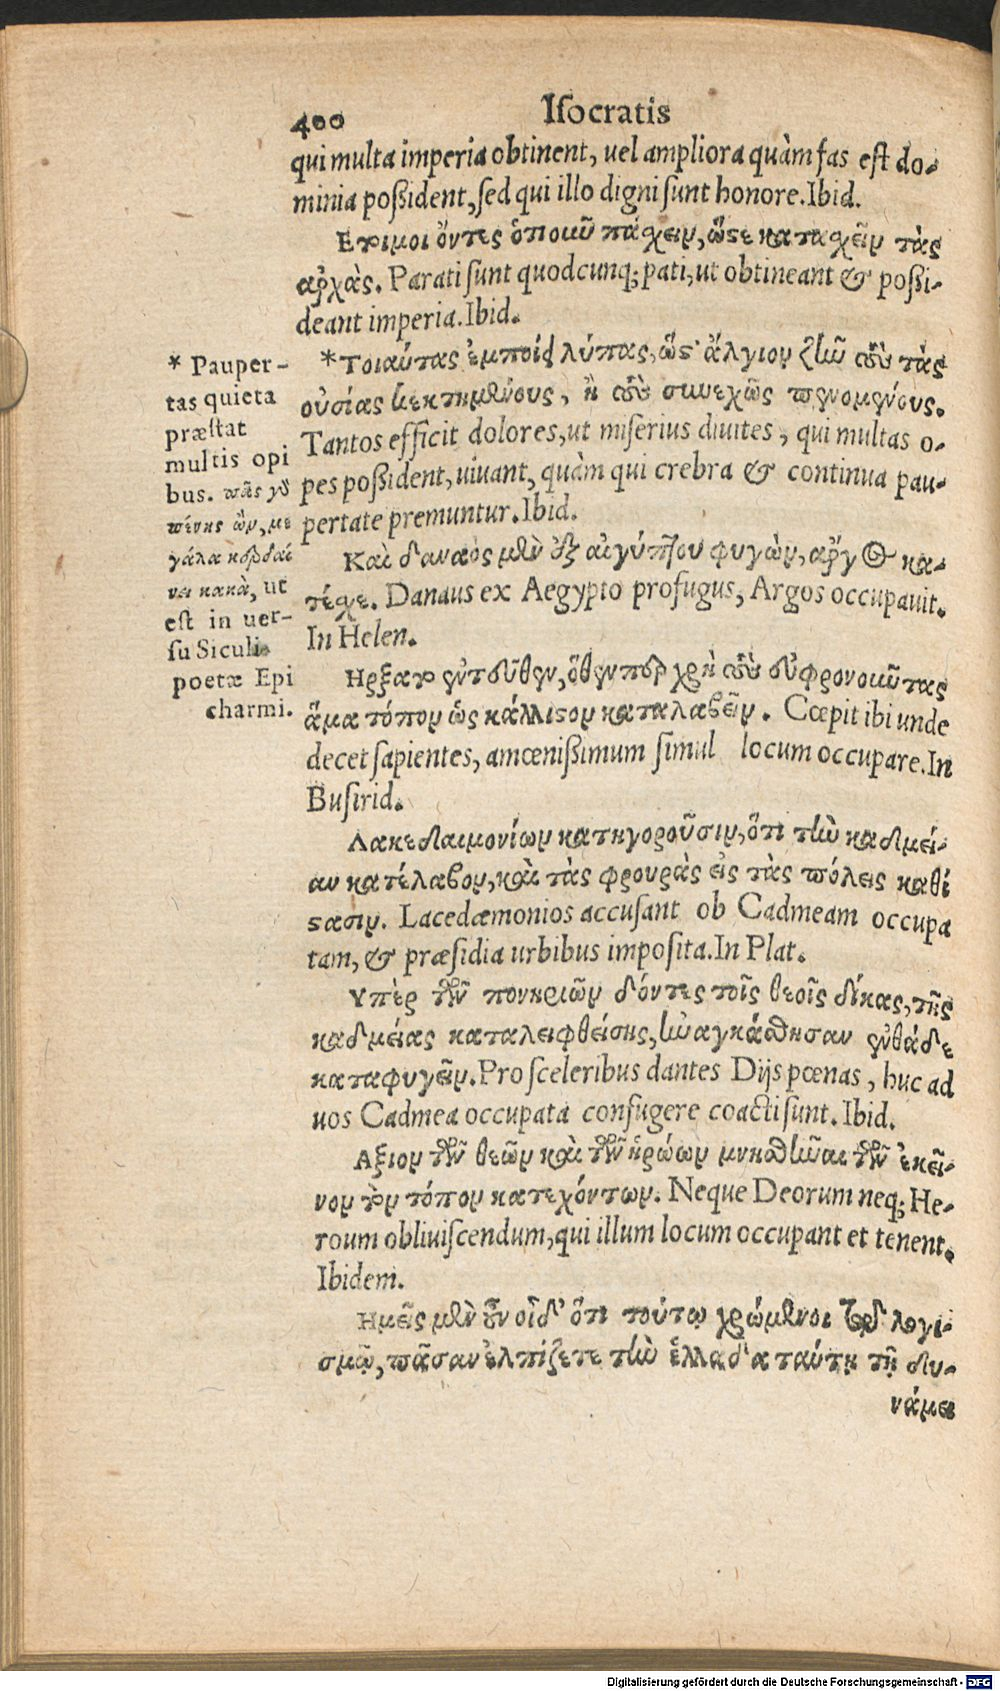 400 Iſocratis
qui multa imperia obtinent, uel ampliora quàm fas eſt do-
minia poßident, ſed qui illo digni ſunt honore. Ibid.
Ετοιμοι ὄντες ὁποιοῦν πάσχειν, ὥστε κατασχεῖν τὰς
ἀρχὰς. Parati ſunt quodcunq; pati, ut obtineant & poßi-
deant imperia. Ibid.
* Τοιαύτας ἐμποιεῖ λύπας, ὥστ' ἄλγιον ζῆν τοὺς τὰς
οὐσίας κεκτημένους, ἢ τοὺς συνεχῶς πενομένους.
Tantos efficit dolores, ut miſerius diuites, qui multas o-
pes poßident, uiuant, quàm qui crebra & continua pau-
pertate premuntur. Ibid.
* Pauper-
tas quieta
præſtat
multis opi
bus. πᾶς γὰρ
πένης ὢν, με
γάλα κερδαί
νει κακὰ, ut
eſt in uer-
ſu Siculi
poetæ Epi
charmi.
Καὶ δαναὸς μὲν ἐξ αἰγύπτου φυγὼν, ἄργος κα-
τέσχε. Danaus ex Aegypto profugus, Argos occupauit.
In Helen.
Ηρξατο ἐντεῦθεν, ὅθενπερ χρὴ τοὺς εὐφρονοῦντας
ἅμα τόπον ὡς κάλλιστον καταλαβεῖν. Cœpit ibi unde
decet ſapientes, amœnißimum ſimul locum occupare. In
Buſirid.
Λακεδαιμονίων κατηγοροῦσιν, ὅτι τὴν καδμεί-
αν κατέλαβον, καὶ τὰς φρουρὰς εἰς τὰς πόλεις καθί
στασιν. Lacedæmonios accuſant ob Cadmeam occupa
tam, & præſidia urbibus impoſita. In Plat.
Υπὲρ τῶν πονηριῶν δόντες τοῖς θεοῖς δίκας, τῆς
καδμείας καταλειφθείσης, ἠναγκάσθησαν ἐνθάδε
καταφυγεῖν. Pro ſceleribus dantes Dijs pœnas, huc ad
uos Cadmea occupata confugere coacti ſunt. Ibid.
Αξιον τῶν θεῶν καὶ τῶν ἡρώων μνησθῆναι τῶν ἐκεῖ-
νον τὸν τόπον κατεχόντων. Neque Deorum neq; He-
roum obliuiſcendum, qui illum locum occupant et tenent.
Ibidem.
Ημεῖς μὲν οὖν οἶδ' ὅτι τούτῳ χρώμενοι τῷ λογι-
σμῷ, πᾶσαν ἐλπίζετε τὴν ἑλλάδα ταύτῃ τῇ δυ-
νάμει
Digitalisierung gefördert durch die Deutsche Forschungsgemeinschaft - DFG